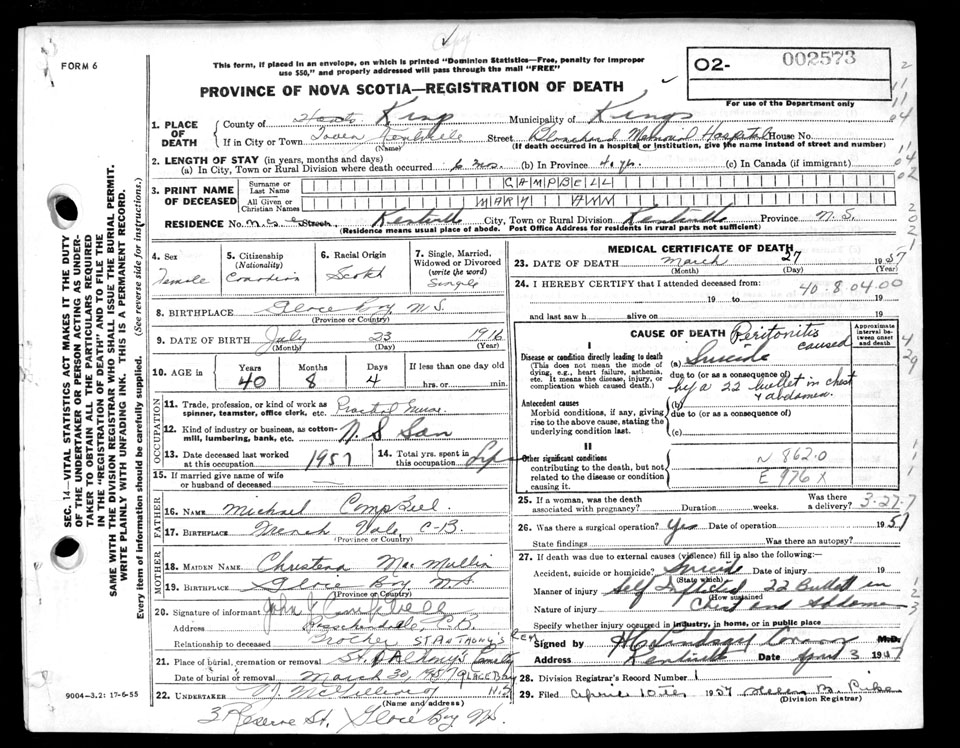 Copy
FORM 6
This form, if placed in an envelope, on which is printed "Dominion Statistics—Free, penalty for improper
use $50," and properly addressed will pass through the mail "FREE"
02- 002573
For use of the Department only
PROVINCE OF NOVA SCOTIA—REGISTRATION OF DEATH
1. PLACE OF DEATH
County of Hants Kings Municipality of Kings
If in City or Town Town Kentville Street Blanchard Memorial Hospital House No.
(Name) (If death occurred in a hospital or institution, give the name instead of street and number)
2. LENGTH OF STAY (in years, months and days)
(a) In City, Town or Rural Division where death occurred 6 mos. (b) In Province 40 yrs. (c) In Canada (if immigrant)
3. PRINT NAME OF DECEASED
Surname or Last Name CAMPBELL
All Given or Christian Names MARY ANN
RESIDENCE No. Street Kentville City, Town or Rural Division Kentville Province N.S.
(Residence means usual place of abode. Post Office Address for residents in rural parts not sufficient)
4. Sex
Female
5. Citizenship
(Nationality)
Canadian
6. Racial Origin
Scotch
7. Single, Married,
Widowed or Divorced
(write the word)
Single
8. BIRTHPLACE Glace Bay N.S.
(Province or Country)
9. DATE OF BIRTH July 23 1916
(Month) (Day) (Year)
10. AGE in Years Months Days If less than one day old
40 8 4 hrs. or min.
OCCUPATION
11. Trade, profession, or kind of work as
spinner, teamster, office clerk, etc. Practical Nurse
12. Kind of industry or business, as cotton-
mill, lumbering, bank, etc. N.S San
13. Date deceased last worked
at this occupation 1957
14. Total yrs. spent in
this occupation Life
15. If married give name of wife
or husband of deceased —
FATHER
16. NAME Michael Campbell
17. BIRTHPLACE C-B.
(Province or Country)
MOTHER
18. MAIDEN NAME Christena MacMullin
19. BIRTHPLACE Glace Bay NS
(Province or Country)
20. Signature of informant John J Campbell
Address C.B.
Relationship to deceased Brother
ST ANTHONY'S CEM
21. Place of burial, cremation or removal St. Anthony's
Date of burial or removal March 30, 1957 GLACE BAY
N.S
22. UNDERTAKER
(Name and address)
3 Reserve St. Glace Bay NS.
MEDICAL CERTIFICATE OF DEATH
23. DATE OF DEATH March 27 1957
(Month) (Day) (Year)
24. I HEREBY CERTIFY that I attended deceased from
40-8-04.00
19 to 19
and last saw h alive on 19
CAUSE OF DEATH
Approximate interval between onset and death
I
Disease or condition directly leading to death
(This does not mean the mode of
dying, e.g., heart failure, asthenia,
etc. It means the disease, injury, or
complication which caused death.)
Peritonitis caused
(a) Suicide
due to (or as a consequence of)
by a 22 bullet in chest
& abdomen
Antecedent causes
Morbid conditions, if any, giving
rise to the above cause, stating the
underlying condition last.
(b)
due to (or as a consequence of)
(c)
II
Other significant conditions
contributing to the death, but not
related to the disease or condition
causing it.
N 862.0
E 976 X
25. If a woman, was the death
associated with pregnancy? Duration weeks. Was there
a delivery?
3-27-7
26. Was there a surgical operation? Yes Date of operation 1957
State findings Was there an autopsy?
27. If death was due to external causes (violence) fill in also the following:
Accident, suicide or homicide? Suicide Date of injury 19
(State which)
Manner of injury Self Inflicted 22 Bullet in
(How sustained)
Nature of injury Chest and Abdomen
Specify whether injury occurred in industry, in home, or in public place
Signed by M.D.
Address Kentville Date April 3 1957
28. Division Registrar's Record Number 1
29. Filed April 10th 1957
(Division Registrar)
SEC. 14—VITAL STATISTICS ACT MAKES IT THE DUTY
OF THE UNDERTAKER OR PERSON ACTING AS UNDER-
TAKER TO OBTAIN ALL THE PARTICULARS REQUIRED
IN THE "REGISTRATION OF DEATH" AND TO FILE THE
SAME WITH THE DIVISION REGISTRAR WHO SHALL ISSUE THE BURIAL PERMIT.
WRITE PLAINLY WITH UNFADING INK. THIS IS A PERMANENT RECORD.
Every item of information should be carefully supplied. (See reverse side for instructions.)
9004-3.2: 17-6-55